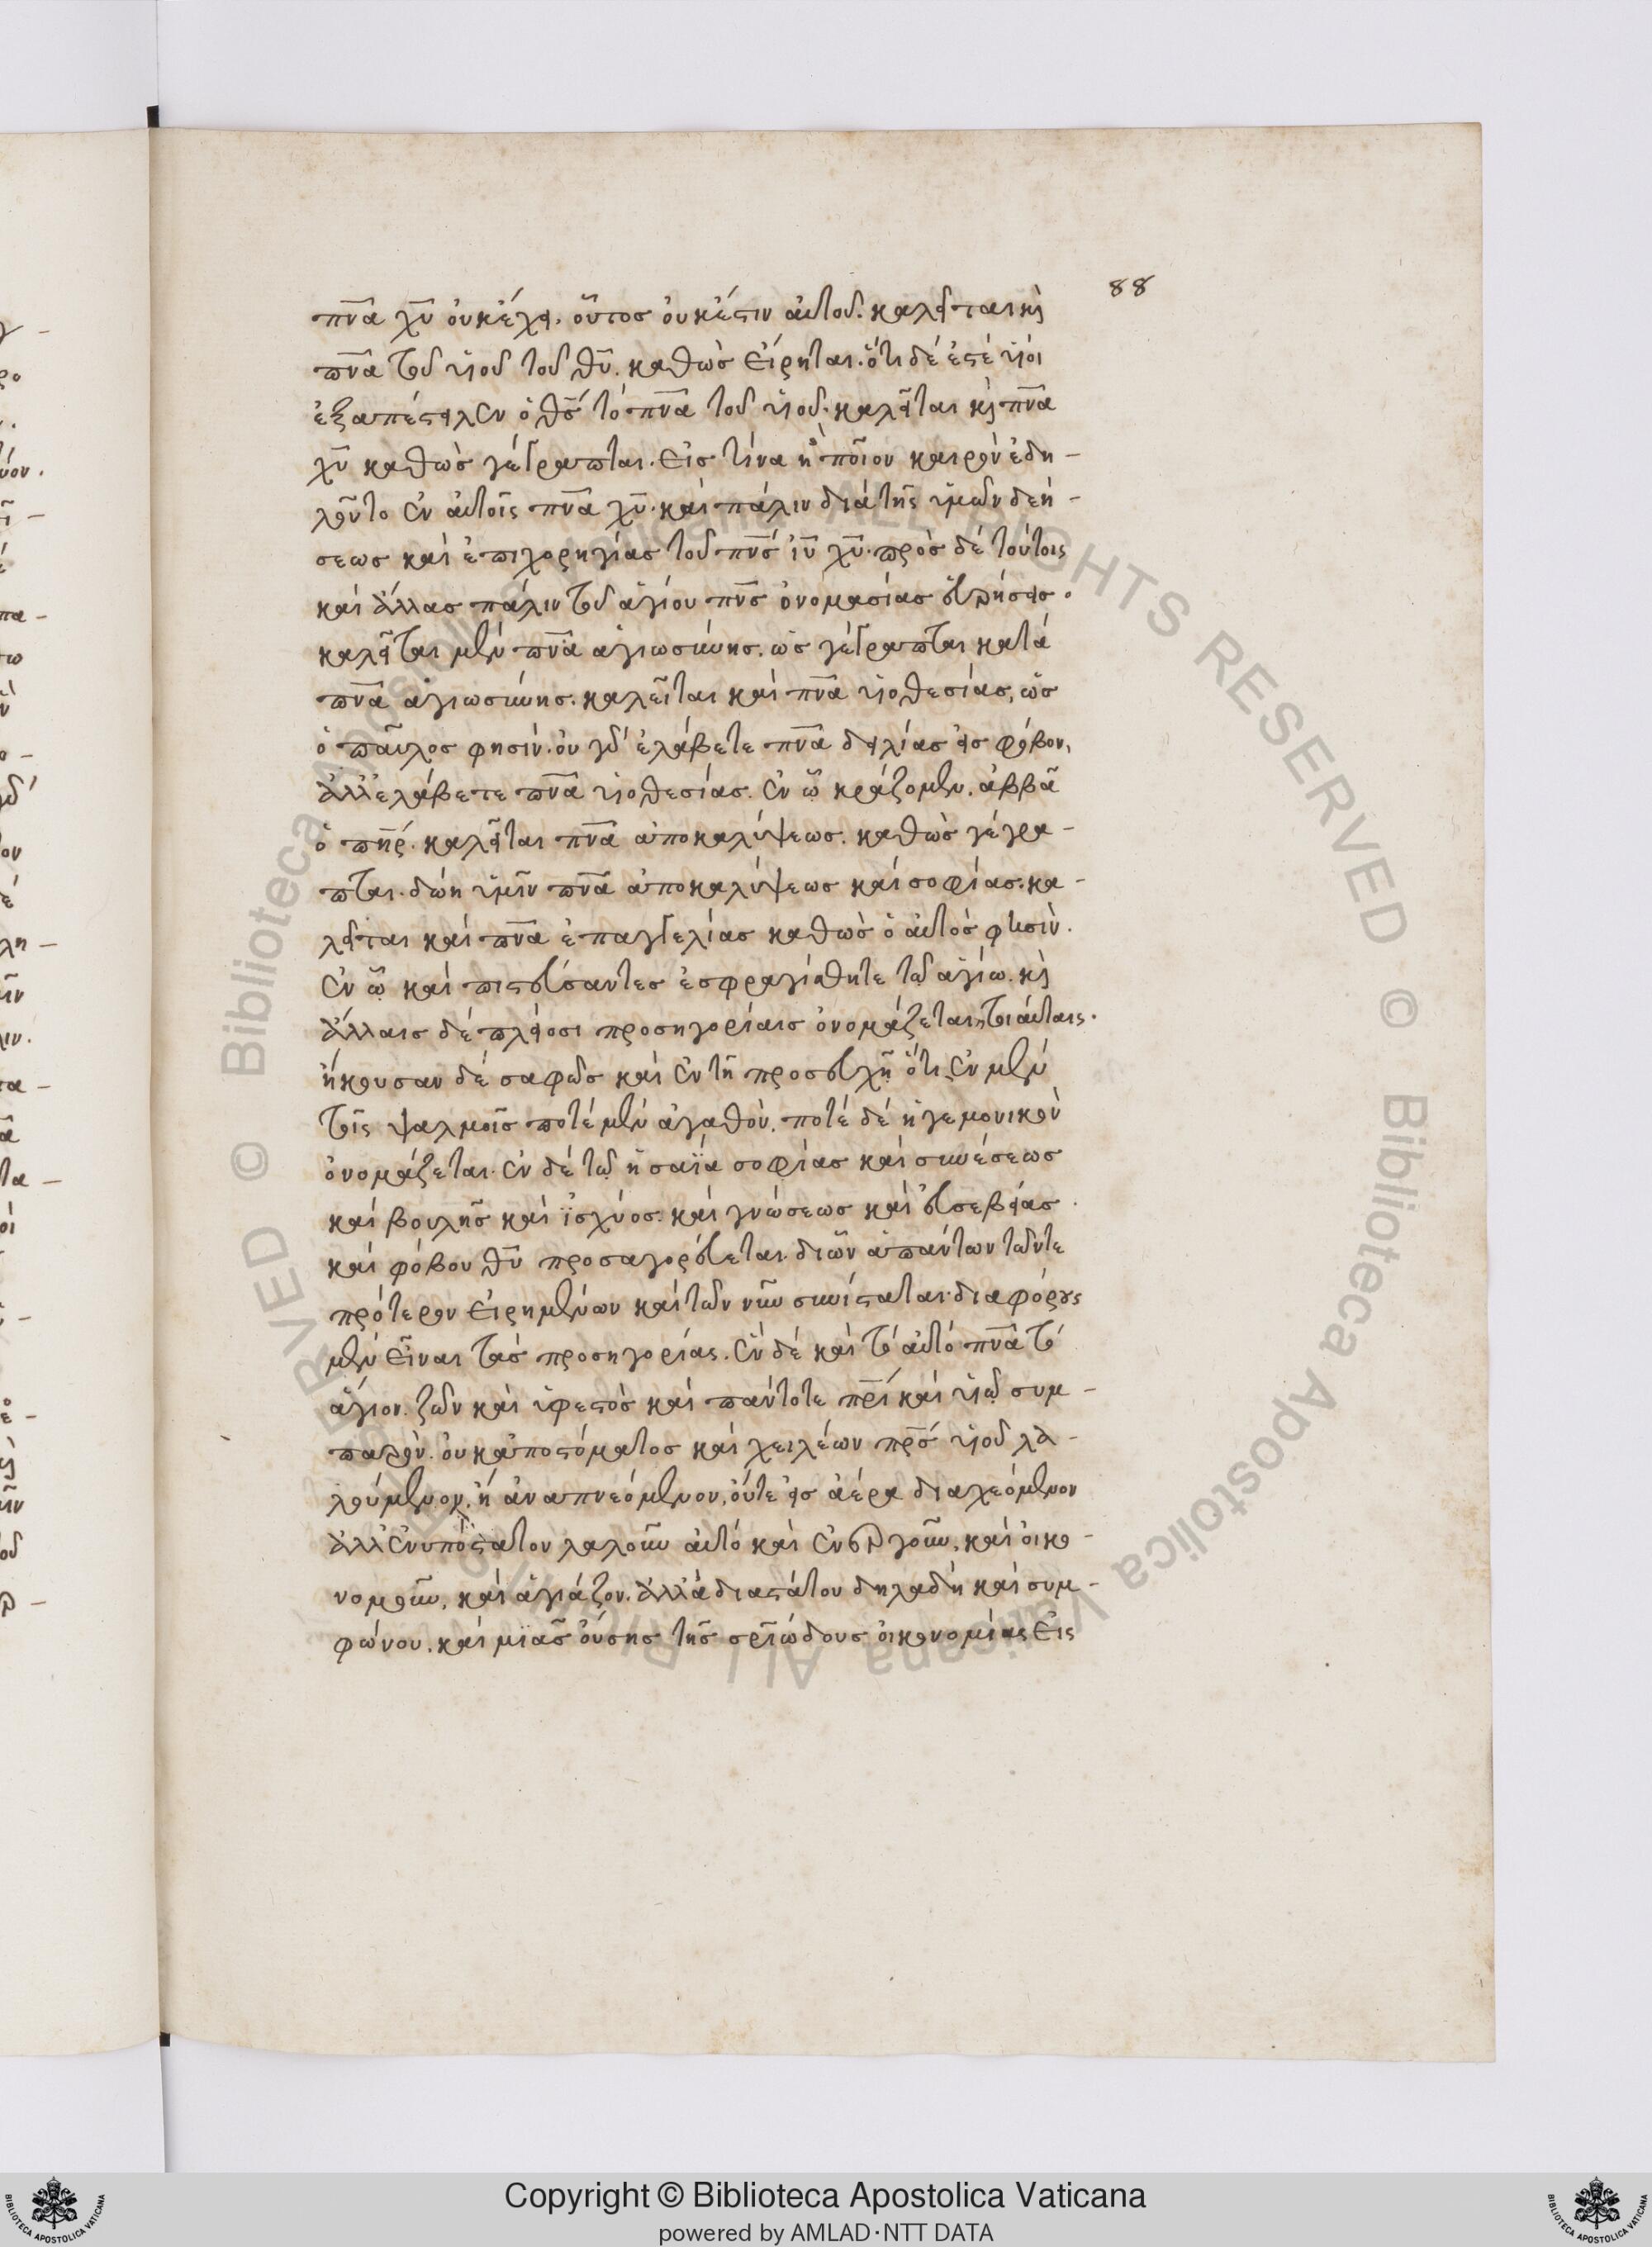 88
πν̅α χυ̅ οὐκ ἔχει. οὗτος οὐκ ἔστιν αὐτοῦ. καλεῖται καὶ
πν̅α τοῦ υἱοῦ τοῦ θυ̅. καθὼς εἴρηται. ὅτι δέ ἐστέ υἱοί
ἐξαπέστειλεν ὁ θς̅ τό πν̅α τοῦ υἱοῦ. καλεῖται καὶ πν̅α
χυ̅ καθὼς γέγραπται. εἰς τίνα ἢ ποῖον καιρὸν ἐδη-
λοῦτο ἐν αὐτοῖς πν̅α χυ̅. καὶ πάλιν διά τῆς ὑμῶν δεή-
σεως καὶ ἐπιχορηγίας τοῦ πνς̅ ἰυ̅ χυ̅. πρὸς δέ τούτοις
καὶ ἄλλας πάλιν τοῦ ἁγίου πνς̅ ὀνομασίας εὑρήσεις.
καλεῖται μέν πν̅α ἁγιωσύνης. ὡς γέγραπται κατά
πν̅α ἁγιωσύνης. καλεῖται καὶ πν̅α υἱοθεσίας, ὡς
ὁ παῦλος φησίν. οὐ γάρ ἐλάβετε πν̅α δειλίας εἰς φόβον,
ἀλλ' ἐλάβετε πν̅α υἱοθεσίας. ἐν ᾧ κράζομεν. ἀββᾶ
ὁ πη̅ρ. καλεῖται πν̅α ἀποκαλύψεως. καθὼς γέγρα-
πται. δώη ὑμῖν πν̅α ἀποκαλύψεως καὶ σοφίας. κα-
λεῖται καὶ πν̅α ἐπαγγελίας καθὼς ὁ αὐτὸς φησίν.
ἐν ᾧ καὶ πιστεύσαντες ἐσφραγίσθητε τῷ ἁγίω. καὶ
ἄλλαις δέ πλείοσι προσηγορίαις ὀνομάζεται τοιαύταις.
ἤκουσαν δέ σαφῶς καὶ ἐν τῇ προσευχῇ ὅτι ἐν μέν
τοῖς ψαλμοῖς ποτέ μέν ἀγαθὸν. ποτέ δέ ἡγεμονικὸν
ὀνομάζεται. ἐν δέ τῷ ἡσαΐα σοφίας καὶ συνέσεως
καὶ βουλῆς καὶ ἰσχύος. καὶ γνώσεως καὶ εὐσεβείας.
καὶ φόβου θυ̅ προσαγορεύεται. δι ὧν ἁπάντων τῶν τε
πρότερον εἰρημένων καὶ τῶν νῦν συνίσταται. διαφόρους
μέν εἶναι τάς προσηγορίας. ἓν δέ καὶ τό αὐτό πν̅α τό
ἅγιον. ζῶν καὶ ὑφεστὸς καὶ πάντοτε πρι̅ καὶ υἱῷ συμ-
παρὸν. οὐκ ἀπο στόματος καὶ χειλέων πρς̅ υἱοῦ λα-
λούμενον. ἢ ἀναπνεόμενον, οὔτε εἰς ἀέρα διαχεόμενον
ἀλλ' ἐνυπόστατον λαλοῦν αὐτό καὶ ἐνεργοῦν, καὶ οἰκο-
νομοῦν, καὶ ἁγιάζον. ἀλλ' ἀδιαστάτου δηλαδή καὶ συμ-
φώνου. καὶ μιᾶς οὔσης τῆς σρ̅ιώδους οἰκονομίας εἰς